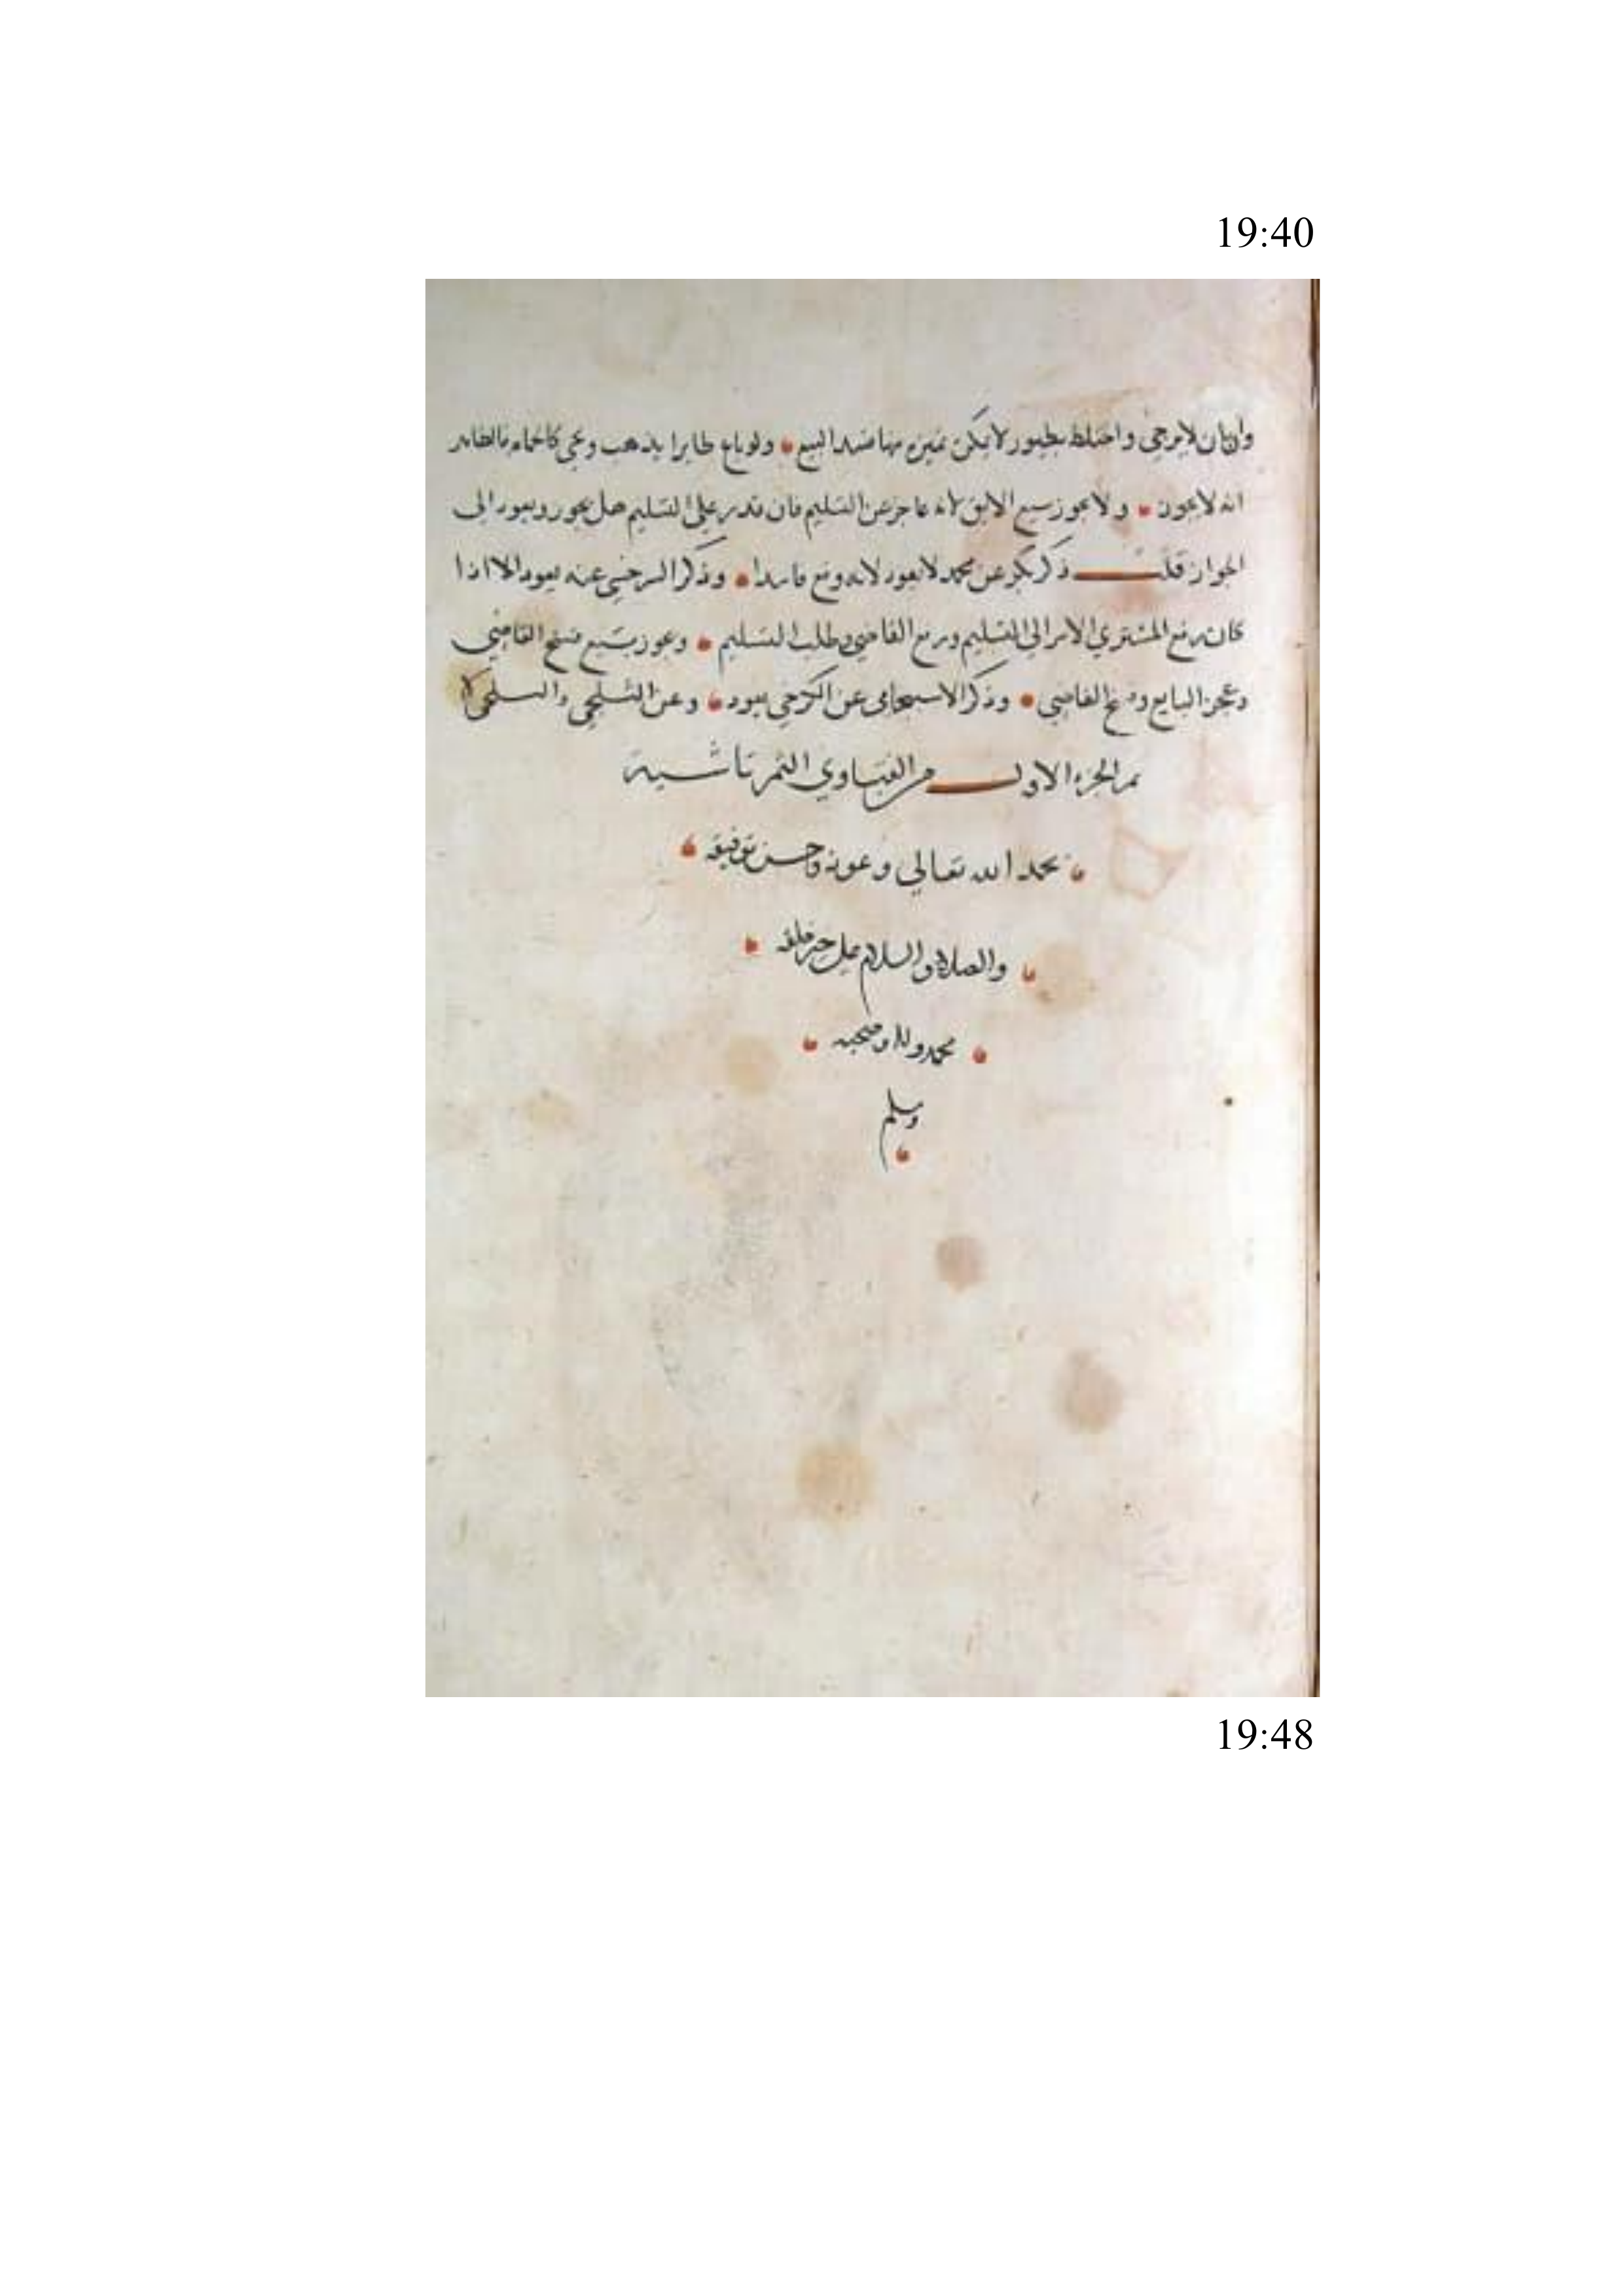 19:40
وان كان لا يرجى واختلط بطيور لا يمكن تميزه منها فسد البيع ولو باع طايرا يذهب ويجي كالحمام فالظاهر
انه لا يجوز ولا يجوز بيع الابق لانه عاجز عن التسليم فان قدر على التسليم هل يجوز ويعود الى
الجواز قلت ذكر بكر عن محمد لا يعود لانه وقع فاسدا وذكر السرخسي عنه يعود الا اذا
كان رفع المشتري الامر الي القاضي وطلب التسليم فسخ القاضي
وعجز البايع وفسخ القاضي وذكر الاسبيجابي عن الكرخي يعود وعن الثلجي لا
تم الجزء الاول من الفتاوي التمرتاشية
بحمد الله تعالي وعونه وحسن توفيقه
والصلاة والسلام على خير خلقه
محمد واله وصحبه
وسلم
19:48